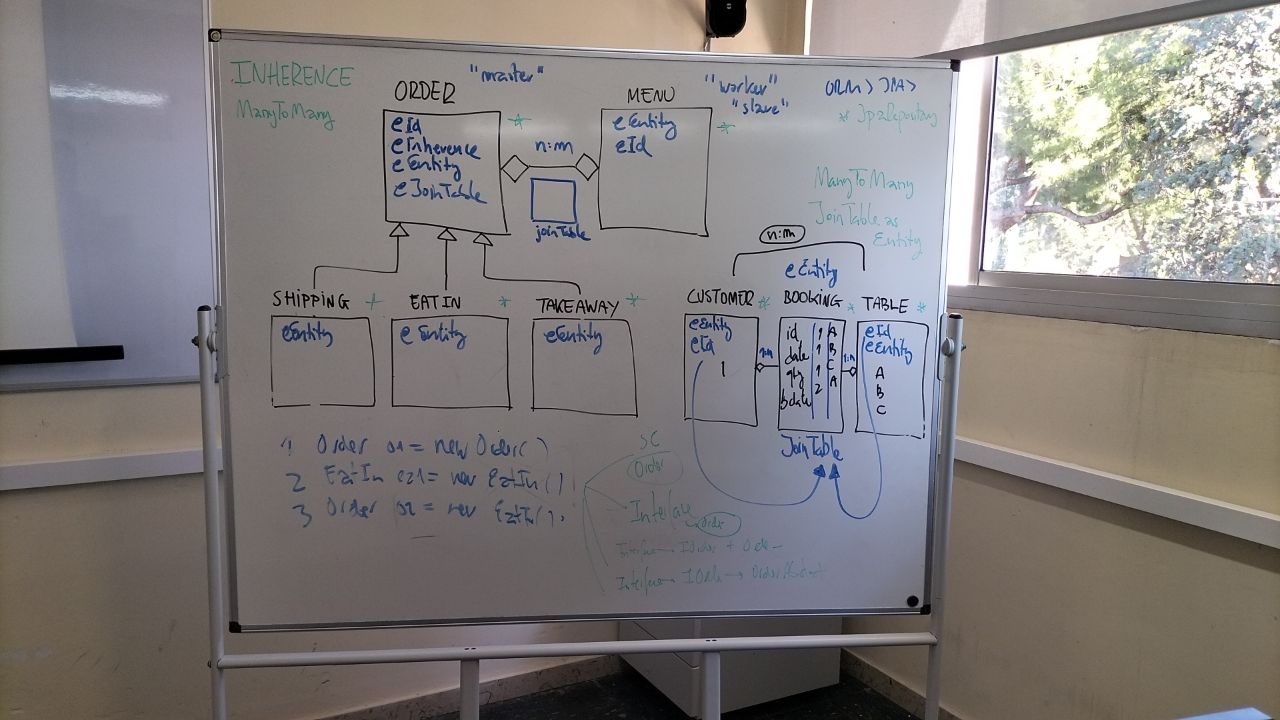 INHERENCE
ManyToMany
ORDER
"master"
@Id
@Inherence
@Entity
@JoinTable
n:m
joinTable
MENU
"worker"
"slave"
@Entity
@Id
ORM > JPA >
* JpaRepository
ManyToMany
JoinTable as
Entity
SHIPPING
@Entity
EAT IN
@Entity
TAKEAWAY
@Entity
n:m
@Entity
CUSTOMER
@Entity
@Id
1
BOOKING
id 1 A
date 1 B
qty 1 C
bdate 2 A
JoinTable
TABLE
@Id
@Entity
A
B
C
1 Order o1 = new Order()
2 EatIn ez1 = new EatIn();
3 Order o2 = new EatIn();
SC
Order
Interface
Order
Interface → IOrder + Order
Interface → IOrder → OrderAbstract